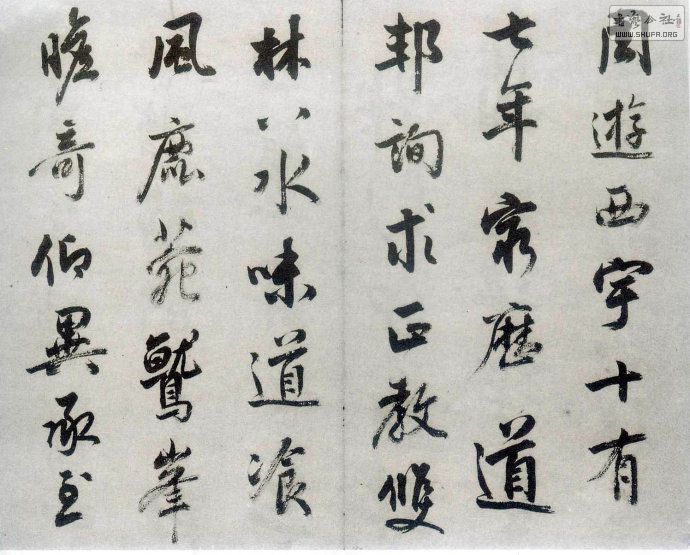 周遊西宇十有
七年窮歷道
邦詢求正教雙
林八水味道飡
風鹿菀鷲峯
瞻奇仰異承至
WWW.SHUFA.ORG